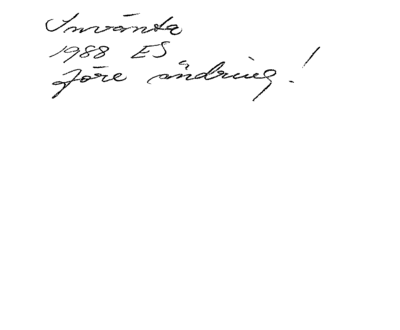 Invänta
1988 ES
före ändring!